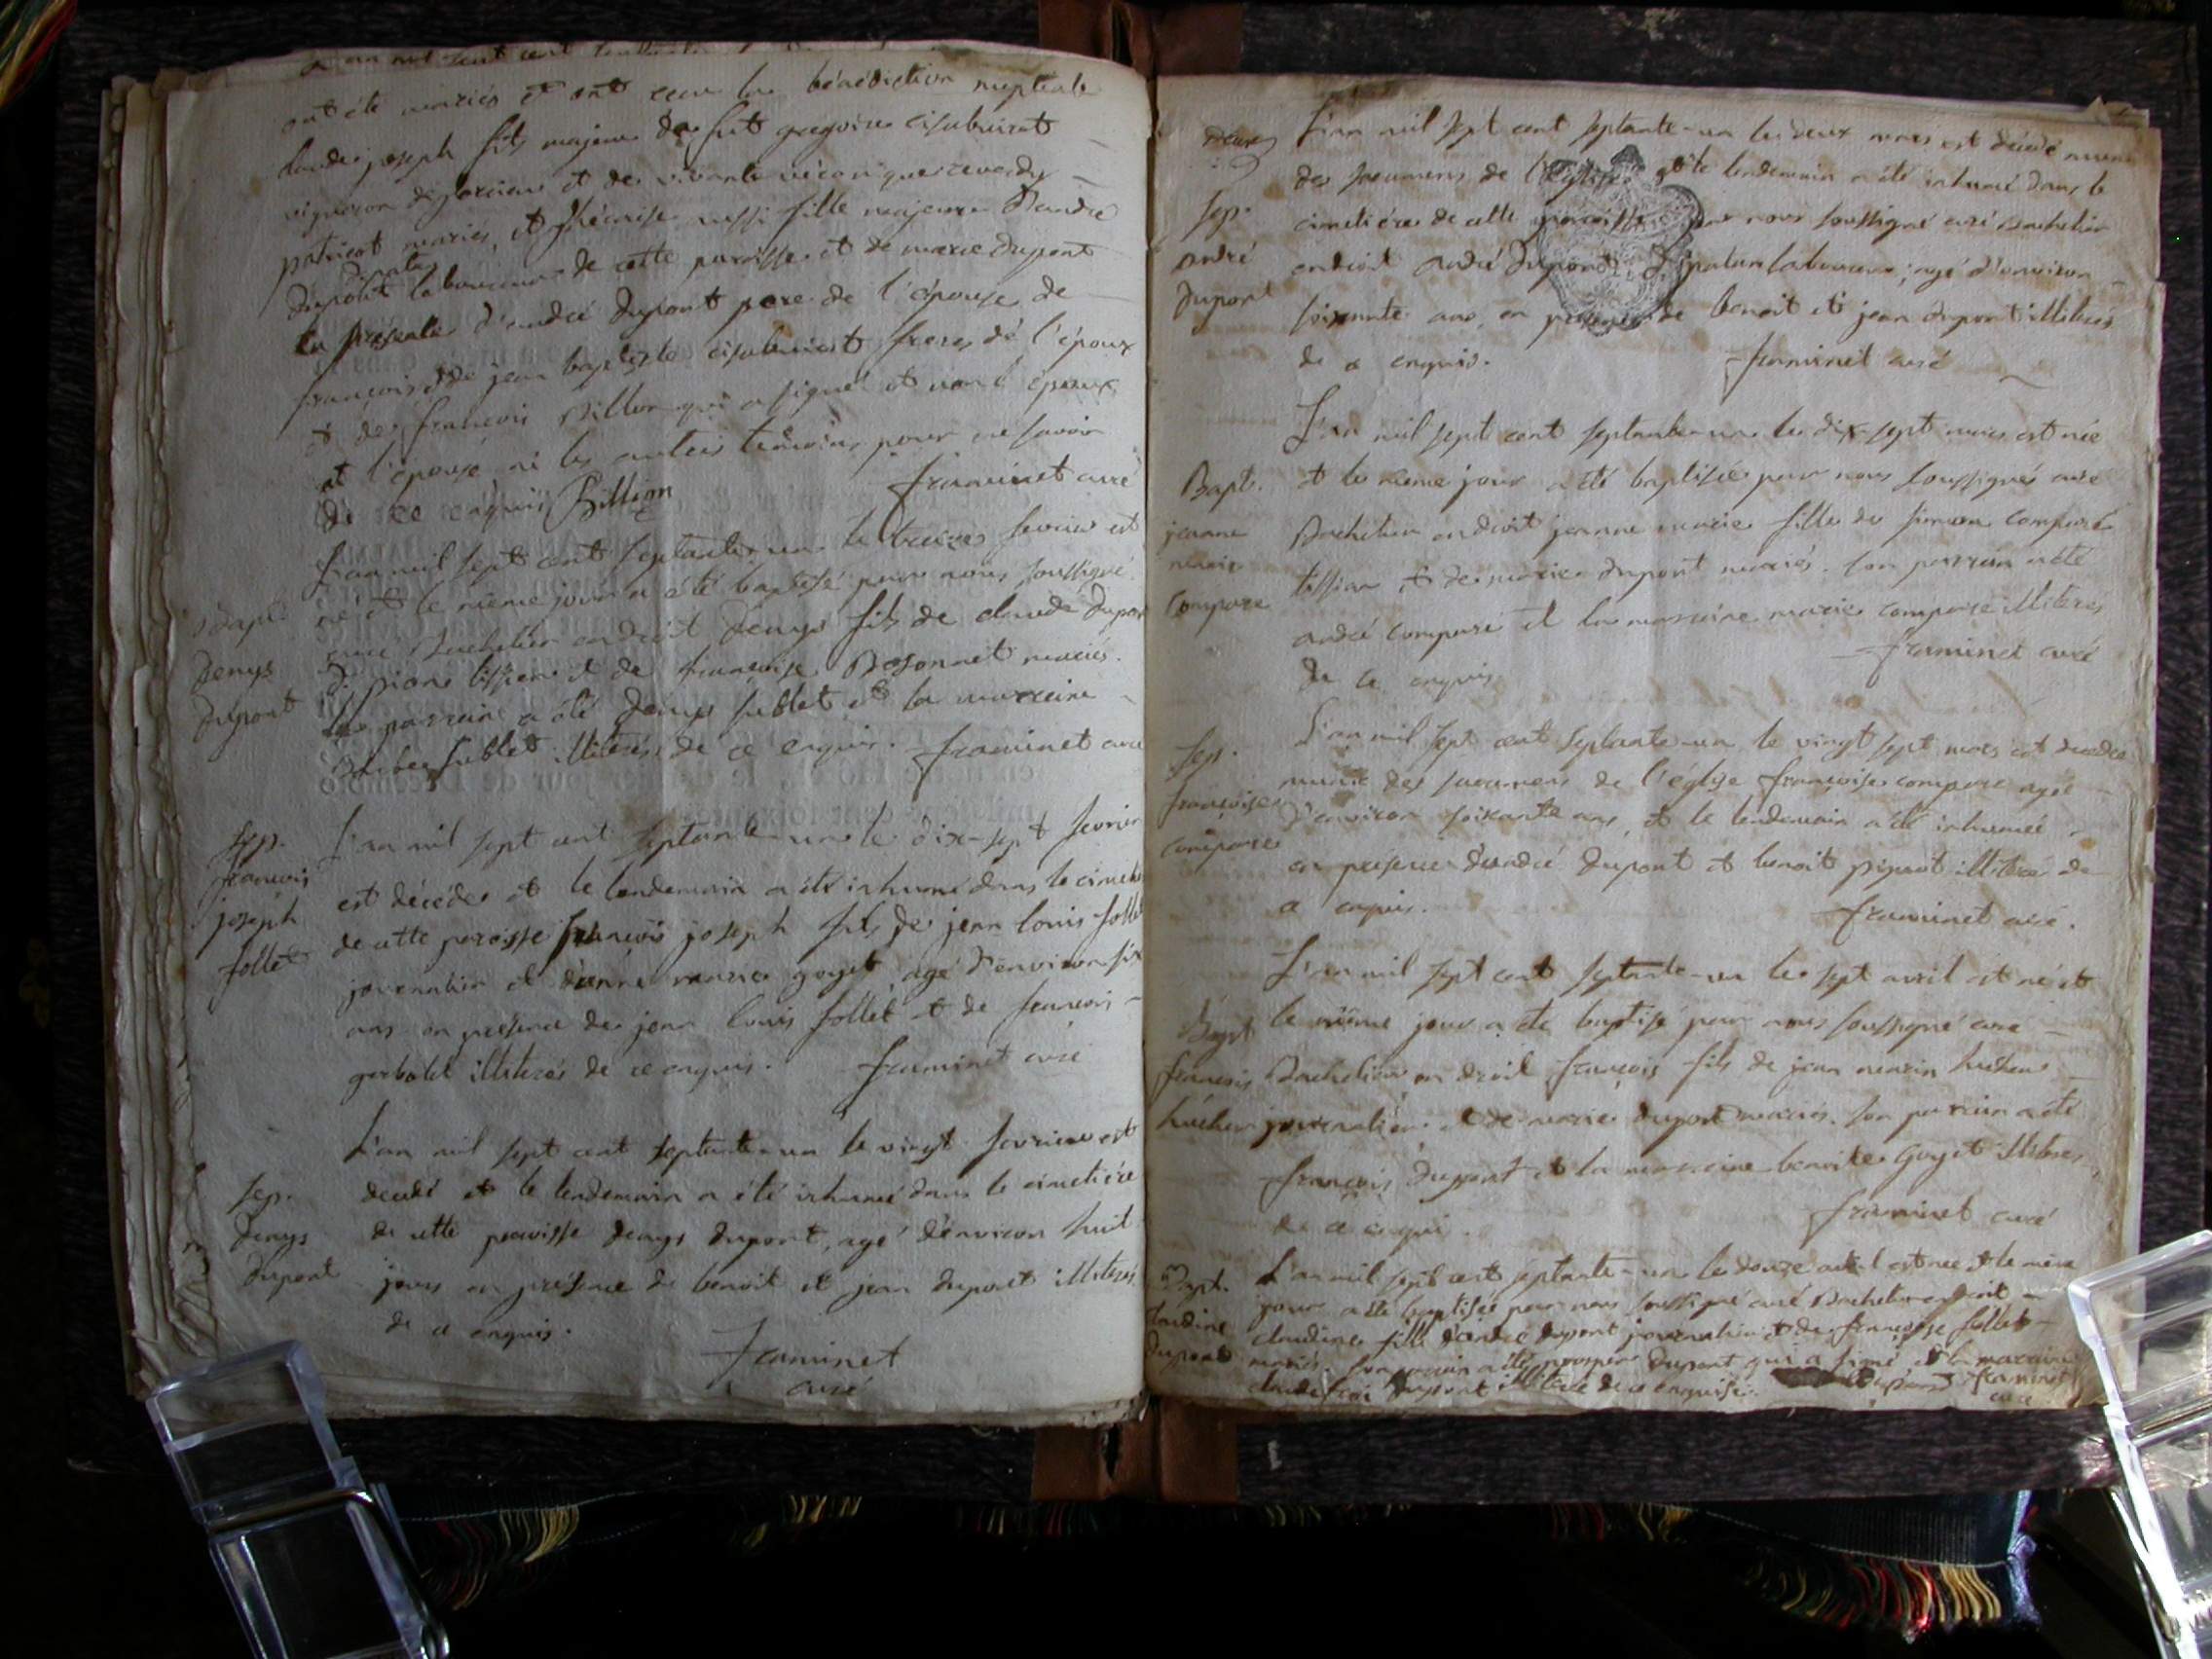 ont été mariés et ont reçu la bénédiction nuptiale
claude joseph fils majeur de fut gregoire
vigneron et de vivante veronique reverdy
patricot mariés, et aussi fille majeure d'andré
dupont laboureur de cette paroisse et de marie dupont
en presence d'andré dupont pere de l'épouse de
françois et de jean baptiste freres de l'époux
et de françois Billion qui a signé et non l'époux
et l'épouse ni les autres temoins pour ne savoir
de ce enquis Billion framinet curé
L'an mil sept cent septante-un le treize fevrier est
né et le même jour a été baptisé par nous soussigné
Bapt.
curé Bachelier en droit denys fils de claude dupont
denys
tissier et de françoise mariés.
dupont
son parrain a été denys sublet et la marraine
sublet illiterés de ce enquis. framinet curé
L'an mil sept cent septante-un le dix-sept fevrier
sep.
françois
est décédé et le lendemain a été inhumé dans le cimetière
joseph
de cette paroisse françois joseph fils de jean louis follet
follet
journalier et d'anne marie goyet, agé d'environ six
ans en presence de jean louis follet et de françois
illiterés de ce enquis. framinet curé
L'an mil sept cent septante-un le vingt fevrier est
sep.
decedé et le lendemain a été inhumé dans le cimetière
denys
de cette paroisse denys dupont, agé d'environ huit
dupont
jours en présence de benoit et jean dupont illiterés
de ce enquis.
framinet
curé
L'an mil sept cent septante-un le deux mars est décédé muni
des sacumens de l'église et le lendemain a été inhumé dans le
sep.
cimetière de cette paroisse par nous soussigné curé Bachelier
andré
en droit andré dupont laboureur, agé d'environ
dupont
soixante ans, en presence de benoit et jean dupont illiterés
de ce enquis. framinet curé
L'an mil sept cent septante-un le dix-sept mars est née
Bapt.
et le même jour a été baptisée par nous soussigné curé
jeanne
Bachelier en droit jeanne marie fille de simon compare
marie
tissier et de marie dupont mariés. son parrain a été
compare
andré compare et la marraine marie compare illiterés
de ce enquis framinet curé
L'an mil sept cent septante-un le vingt sept mars est decedée
sep.
munie des sacumens de l'église françoise compare agée
françoise
d'environ soixante ans, et le lendemain a été inhumée
compare
en presence d'andré dupont et benoit illiterés de
ce enquis. framinet curé.
L'an mil sept cent septante-un le sept avril est né et
Bapt
le même jour a été baptisé par nous soussigné curé
françois
Bachelier en droit françois fils de jean marin
journalier et de marie dupont mariés. son parrain a été
françois dupont et la marraine benoite Goyet illiterés
de ce enquis. framinet curé
L'an mil sept cent septante-un le douze avril est née et le même
Bapt.
jour a été baptisée par nous soussigné curé Bachelier en droit
claudine
claudine fille d'andré dupont journalier et de françoise follet
dupont
mariés. son parrain a été prosper dupont qui a signé, et la marraine
dupont illiterée de ce enquise. framinet
curé